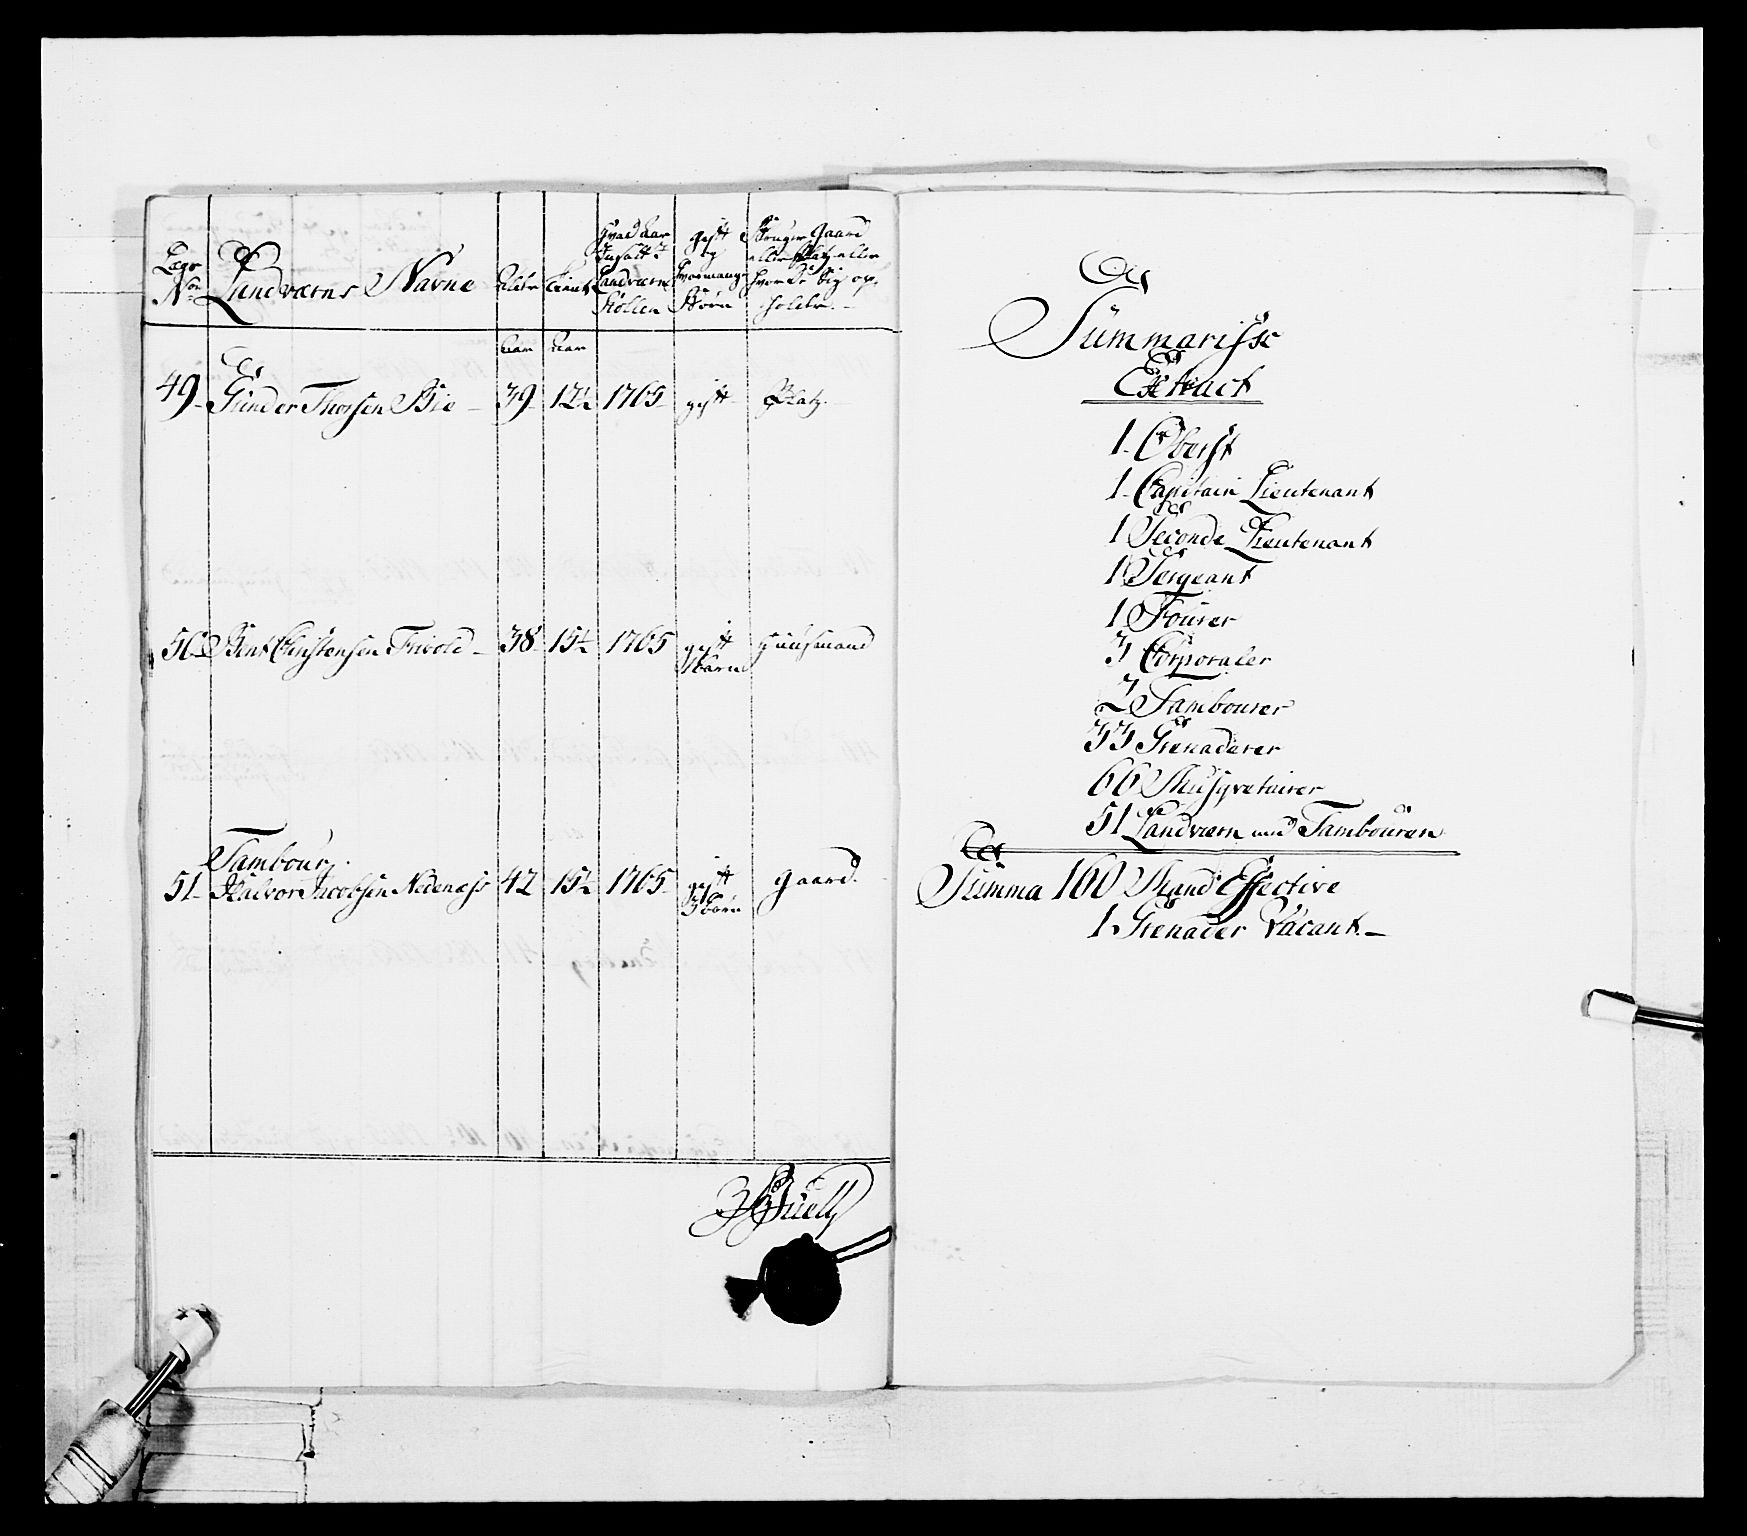 Lægs No Landværns Navne Alder Tient Hvad Aar Indsatt i Landværns Rollen gift og hvormange Børn Bruger Gaard eller Platz eller hvor de sig opholder.
Aar Aar
49 Gunder Thorsen Bie 39 12½ 1765 gift Platz.
50 Bent Christensen Frivold 38 15½ 1765 gift Huusmand
Børn
Tambour
51 Halvor Jacobsen Nedenæss 42 15½ 1765 gift Gaard.
3 Børn
Summarisk
Extract
1 Oberst
1 Capitain Lieutenant
1 Seconde Lieutenant
1 Sergeant
1 Fourer
3 Corporaler
2 Tambourer
33 Grenaderer
66 Musqvetairer
51 Landværn med Tambouren
Summa 160 Mand Effective
1 Grenader Vacant